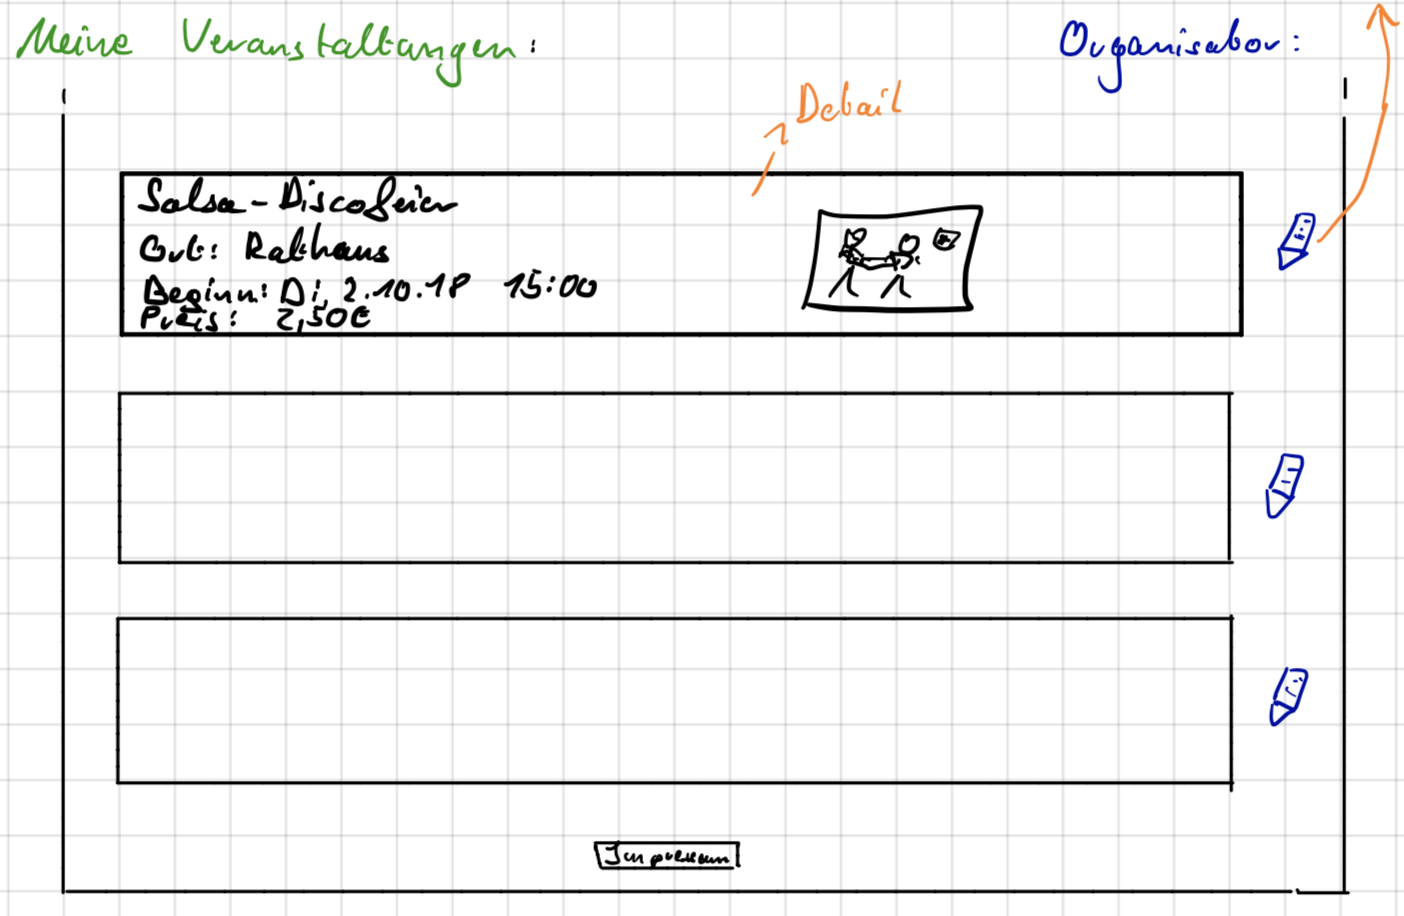 Meine Veranstaltungen:
Organisator:
Detail
Salsa-Discofeier
Ort: Rathaus
Beginn: Di, 2.10.18 15:00
Preis: 2,50€
Impressum